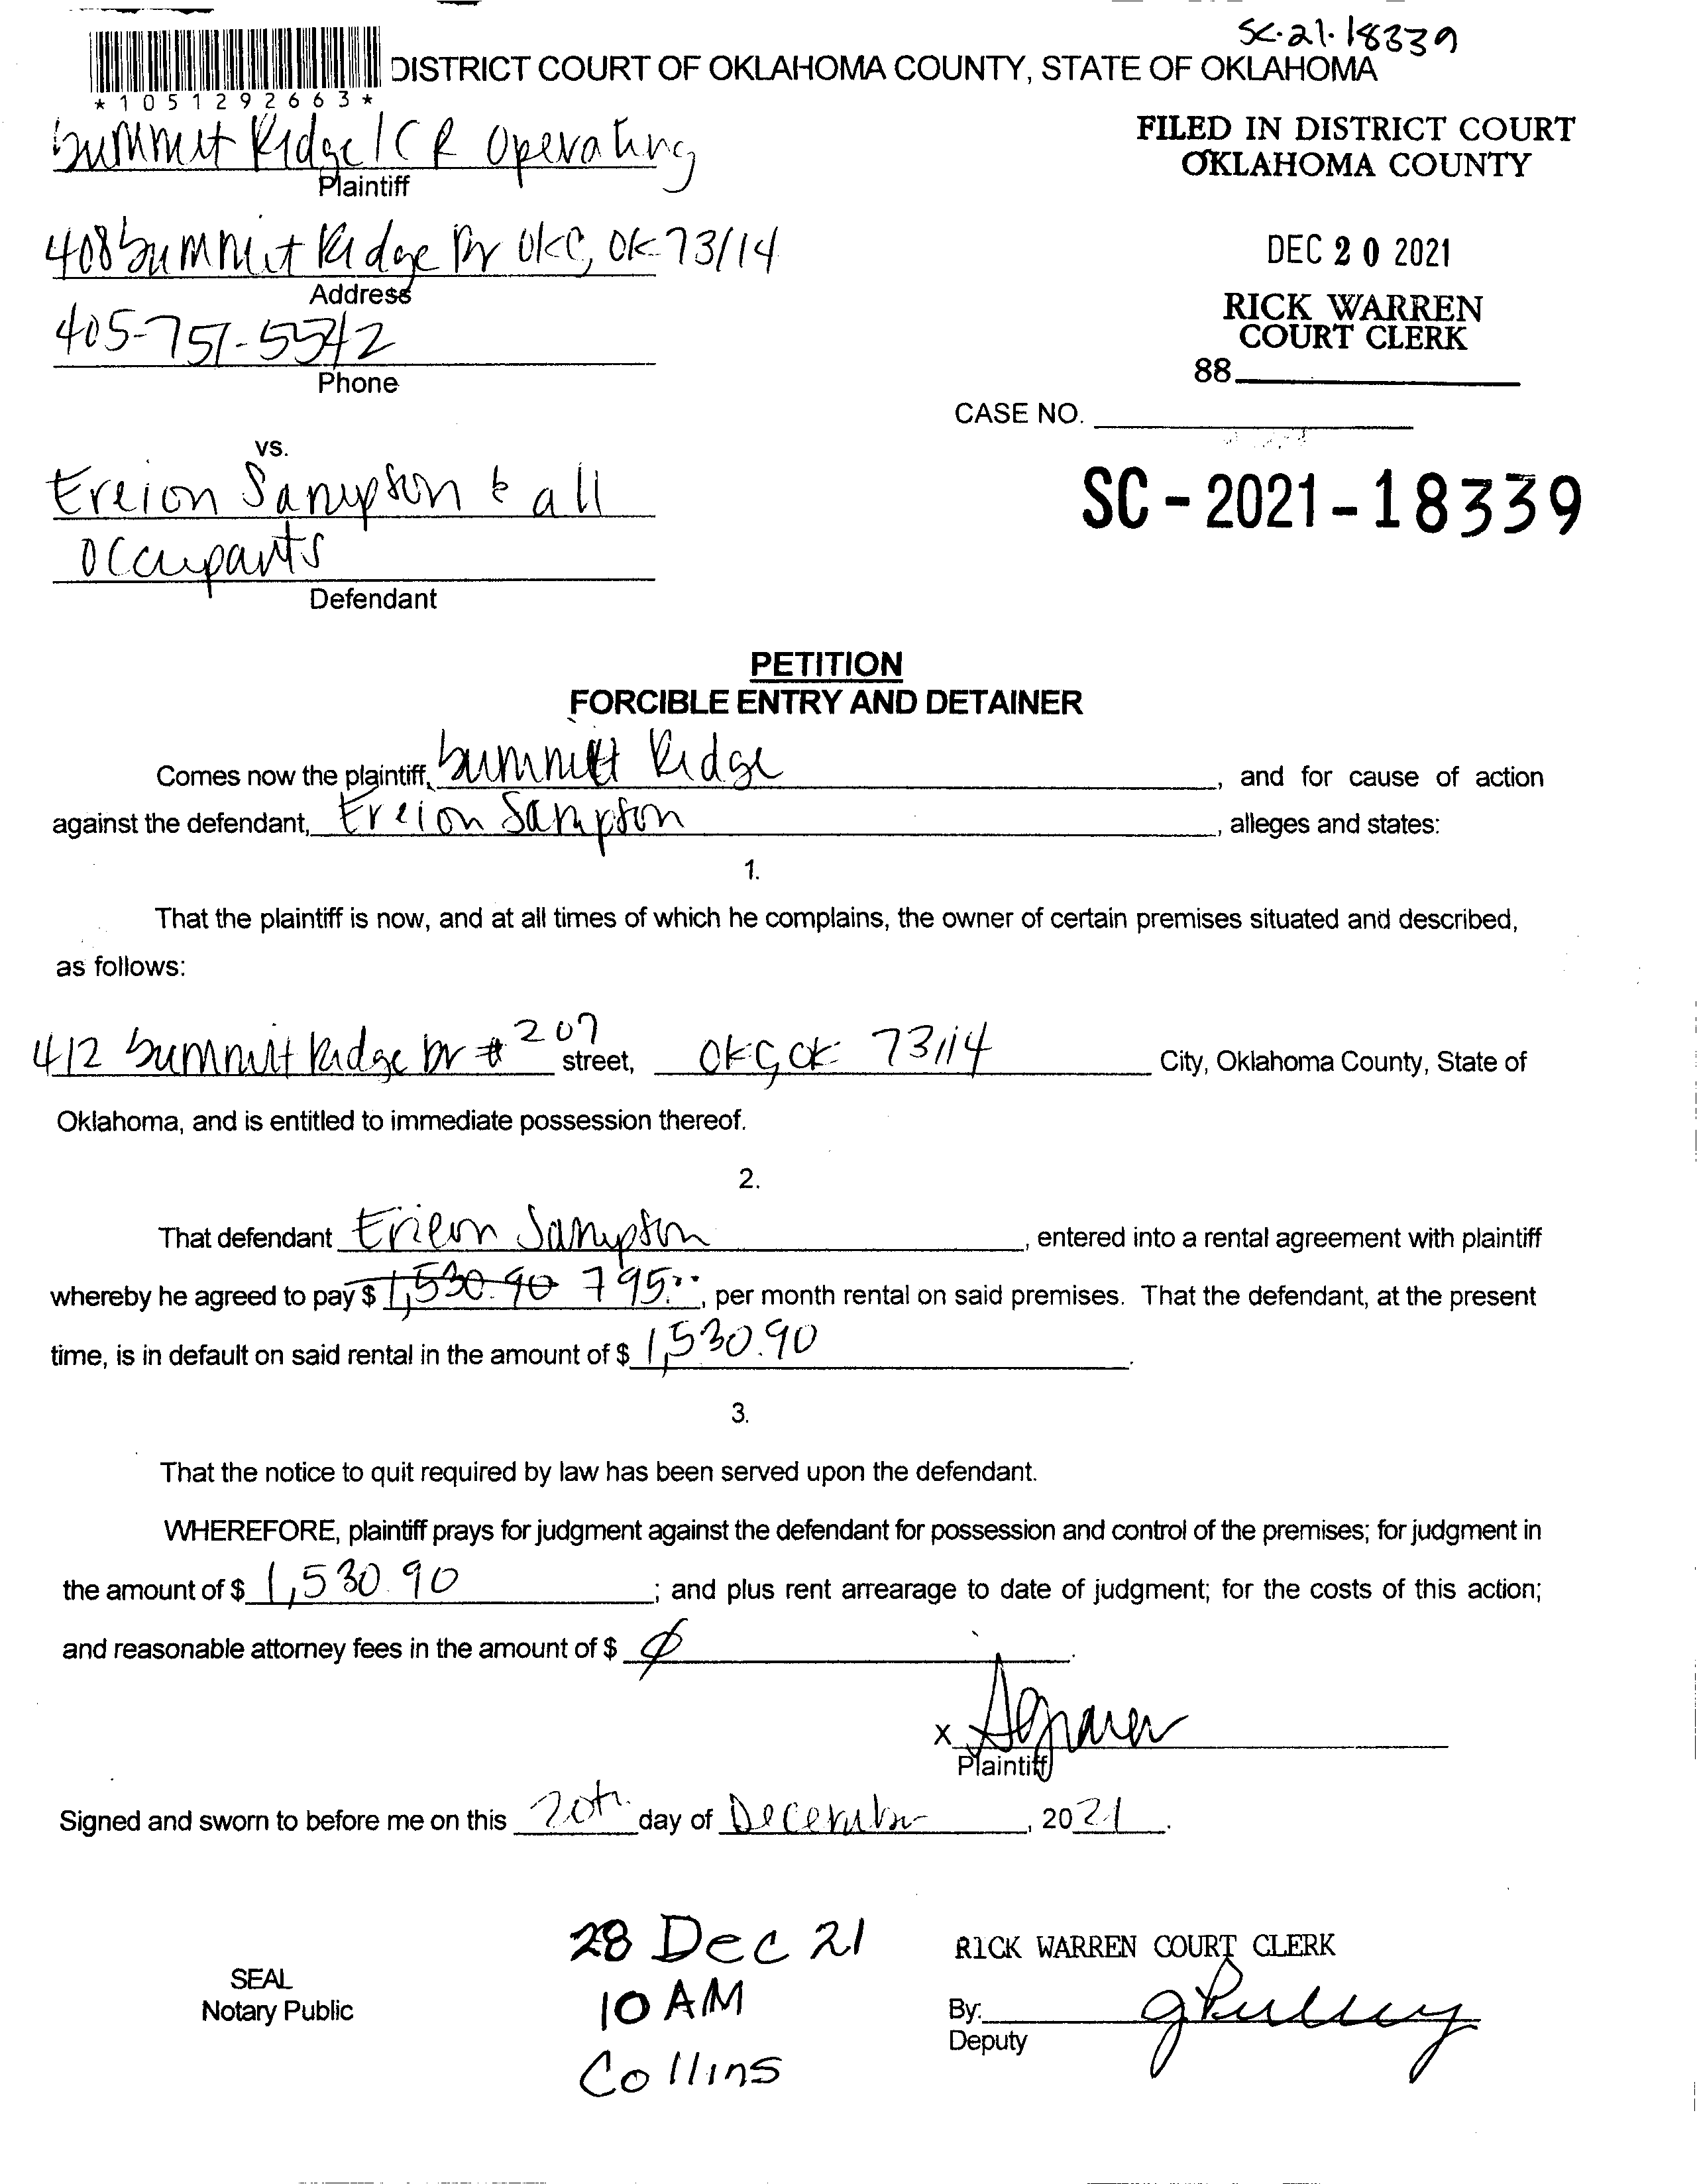 SC-21-18339
DISTRICT COURT OF OKLAHOMA COUNTY, STATE OF OKLAHOMA
*1051292663*
Summit Ridge/CR Operating
Plaintiff
FILED IN DISTRICT COURT
OKLAHOMA COUNTY
408 Summit Ridge Dr OKC, OK 73114
Address
DEC 20 2021
405-751-5542
Phone
RICK WARREN
COURT CLERK
88
CASE NO.
vs.
SC-2021-18339
Ereion Sampson & all
occupants
Defendant
PETITION
FORCIBLE ENTRY AND DETAINER
Comes now the plaintiff, Summitt Ridge, and for cause of action
against the defendant, Ereion Sampson, alleges and states:
1.
That the plaintiff is now, and at all times of which he complains, the owner of certain premises situated and described,
as follows:
412 Summit Ridge Dr # 207 street, OKC, OK 73114 City, Oklahoma County, State of
Oklahoma, and is entitled to immediate possession thereof.
2.
That defendant Erieon Sampson, entered into a rental agreement with plaintiff
whereby he agreed to pay $ 1,530.90 795.00, per month rental on said premises. That the defendant, at the present
time, is in default on said rental in the amount of $ 1,530.90.
3.
That the notice to quit required by law has been served upon the defendant.
WHEREFORE, plaintiff prays for judgment against the defendant for possession and control of the premises; for judgment in
the amount of $ 1,530.90; and plus rent arrearage to date of judgment; for the costs of this action;
and reasonable attorney fees in the amount of $ Ø.
X
Plaintiff
Signed and sworn to before me on this 20th day of December, 2021.
28 Dec 21
10 AM
Collins
SEAL
Notary Public
RICK WARREN COURT CLERK
By:
Deputy